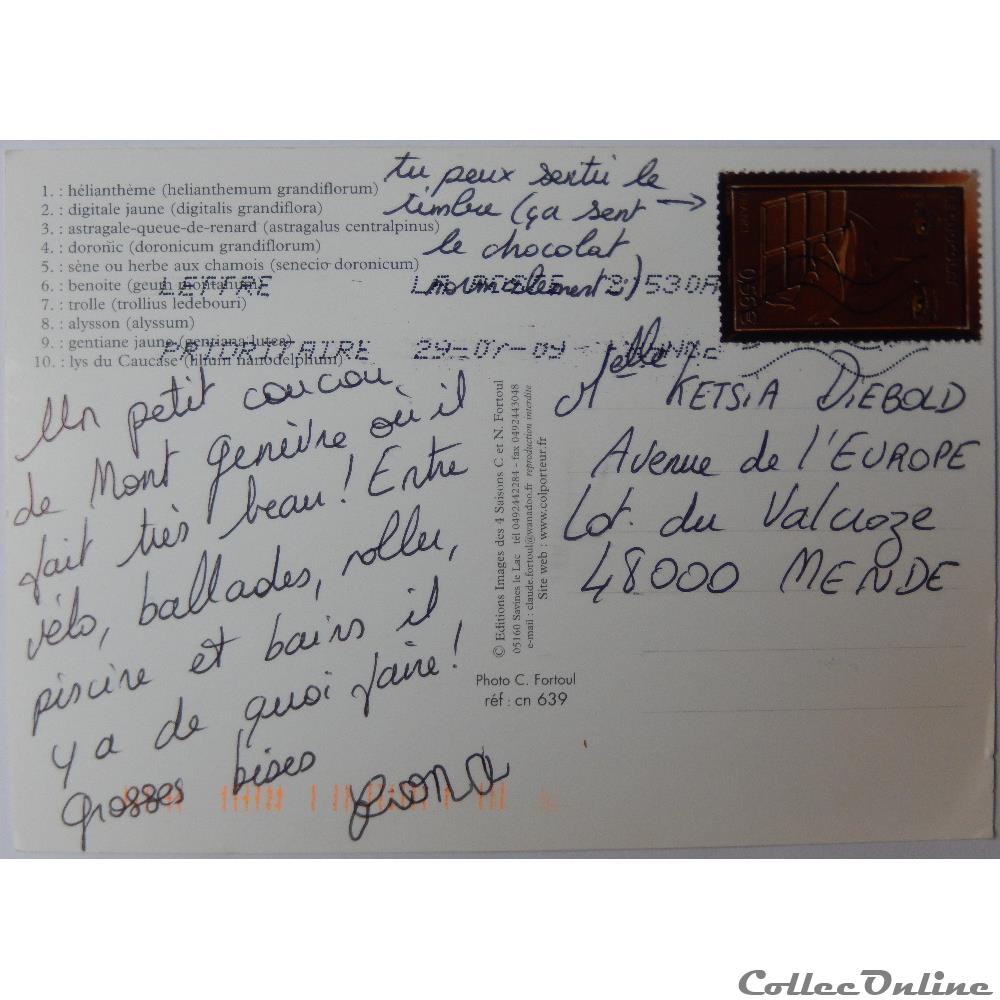 1. : hélianthème (helianthemum grandiflorum)
2. : digitale jaune (digitalis grandiflora)
3. : astragale-queue-de-renard (astragalus centralpinus)
4. : doronic (doronicum grandiflorum)
5. : sène ou herbe aux chamois (senecio doronicum)
6. : benoite (geum montanum)
7. : trolle (trollius ledebouri)
8. : alysson (alyssum)
9. : gentiane jaune (gentiana lutea)
10. : lys du Caucase (lilium nanodelphum)
tu peux sentir le
timbre (ça sent →
le chocolat
normalement :)
LETTRE
PRIORITAIRE 29-07-09
Un petit coucou
de Mont genèvre où il
fait très beau ! Entre
vélo, ballades, roller,
piscine et bains il
y a de quoi faire !
Grosses bises
© Editions Images des 4 Saisons C et N. Fortoul
05160 Savines le Lac tél 0492442284 - fax 0492443048
e-mail : claude.fortoul@wanadoo.fr reproduction interdite
Site web : www.colporteur.fr
Photo C. Fortoul
réf : cn 639
Melle KETSIA DIEBOLD
Avenue de l'EUROPE
Lot. du Valcroze
48000 MENDE
CollecOnline